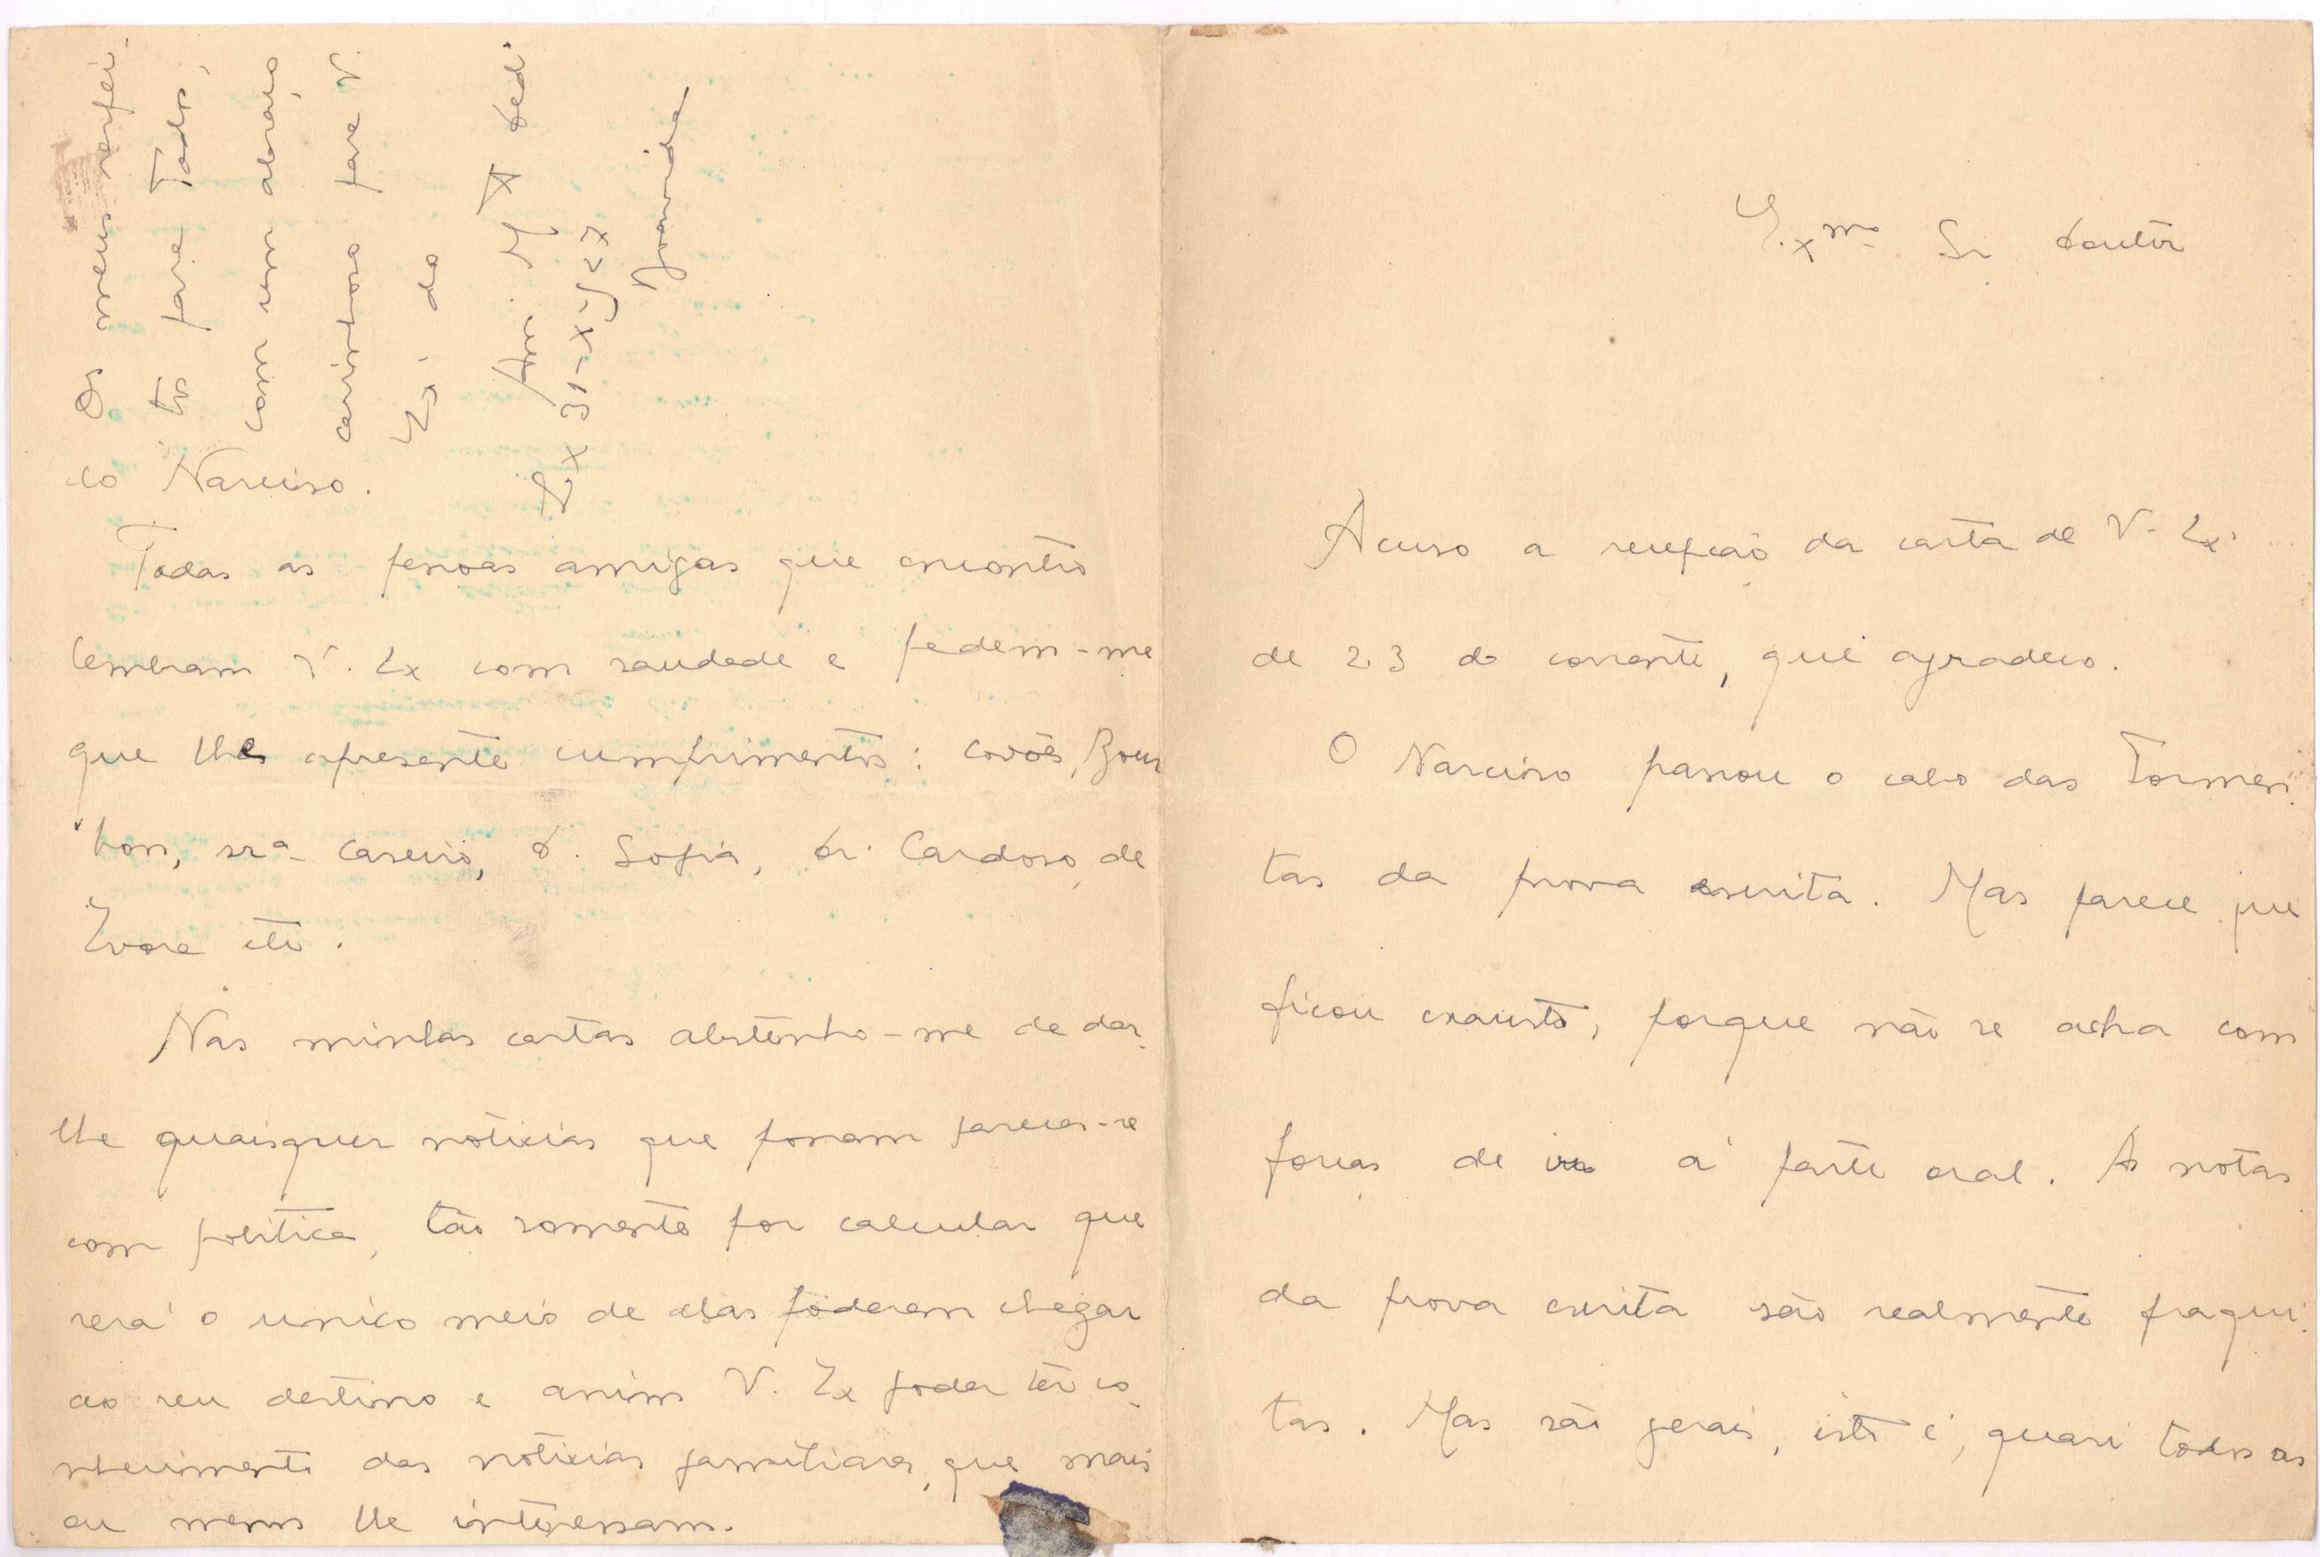 Ex.mo Sr Doutôr
Acuso a recepção da carta de V. Ex.
de 23 do corrente, que agradeco.
O Narciso passou o cabo das Tormen-
tas da prova escrita. Mas parece que
ficou exausto, porque não se acha com
forças de ir á parte oral. As notas
da prova escrita são realmente fraqui-
tas. Mas são gerais, isto é, quasi todos as
co Narciso.
Todas as pessoas amigas que encontro
lembram V. Ex com saudade e pedem-me
que lhes apresente cumprimentos: Covões, Bour
bon, sr.a Caseiro, D. Sofia, Dr. Cardoso, de
Evora etc.
Nas minhas cartas abstenho-me de dar-
lhe quaisquer noticias que possam parecer-se
com politica, tão somente por calcular que
será o unico meio de elas poderem chegar
ao seu destino e assim V. Ex poder têr co-
nhecimento das noticias familiares, que mais
ou menos lhe interessam.
Os meus respei-
tos para Todos,
com um abraço
carinhoso para V.
Ex. do
Am. M.to Ded.
Lx 31-X-927